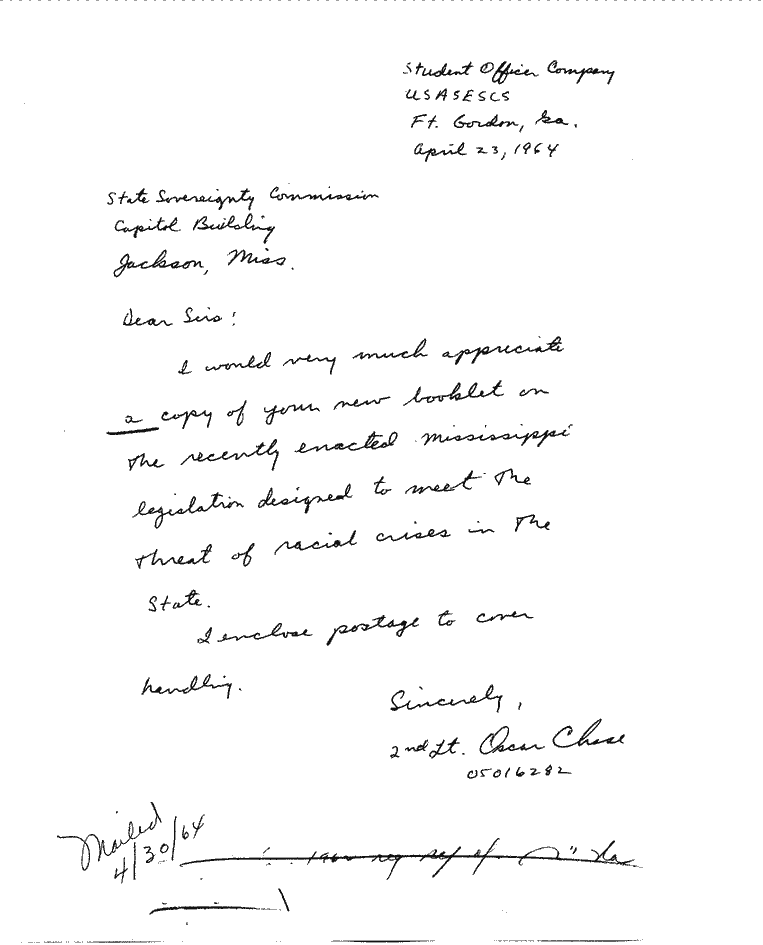 Student Officer Company
USASESCS
Ft. Gordon, Ga.
April 23, 1964
State Sovereignty Commission
Capitol Building
Jackson, Miss.
Dear Sirs:
I would very much appreciate
a copy of your new booklet on
the recently enacted Mississippi
legislation designed to meet the
threat of racial crises in the
State.
I enclose postage to cover
handling.
Sincerely,
2nd Lt. Oscar Chase
05016282
Mailed
4/30/64